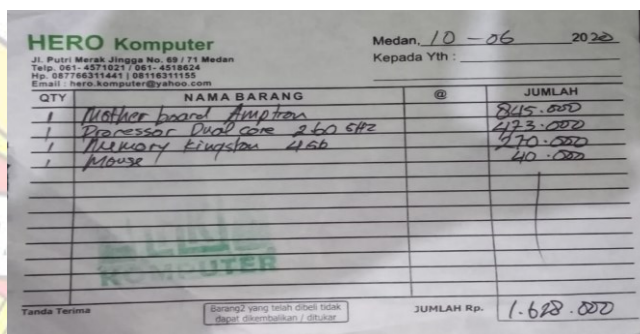 HERO Komputer
Jl. Putri Merak Jingga No. 69 / 71 Medan
Telp. 061- 4571021 / 061- 4518624
Hp. 087766311441 | 08116311155
Email : hero.komputer@yahoo.com
Medan, 10 - 06 2020
Kepada Yth :
QTY NAMA BARANG @ JUMLAH
1 Mother board Amptron 845.000
1 Processor Dual core 260 GHz 473.000
1 Memory Kingston 4Gb 270.000
1 Mouse 40.000
KOMPUTER
Tanda Terima
Barang2 yang telah dibeli tidak
dapat dikembalikan / ditukar
JUMLAH Rp. 1.628.000